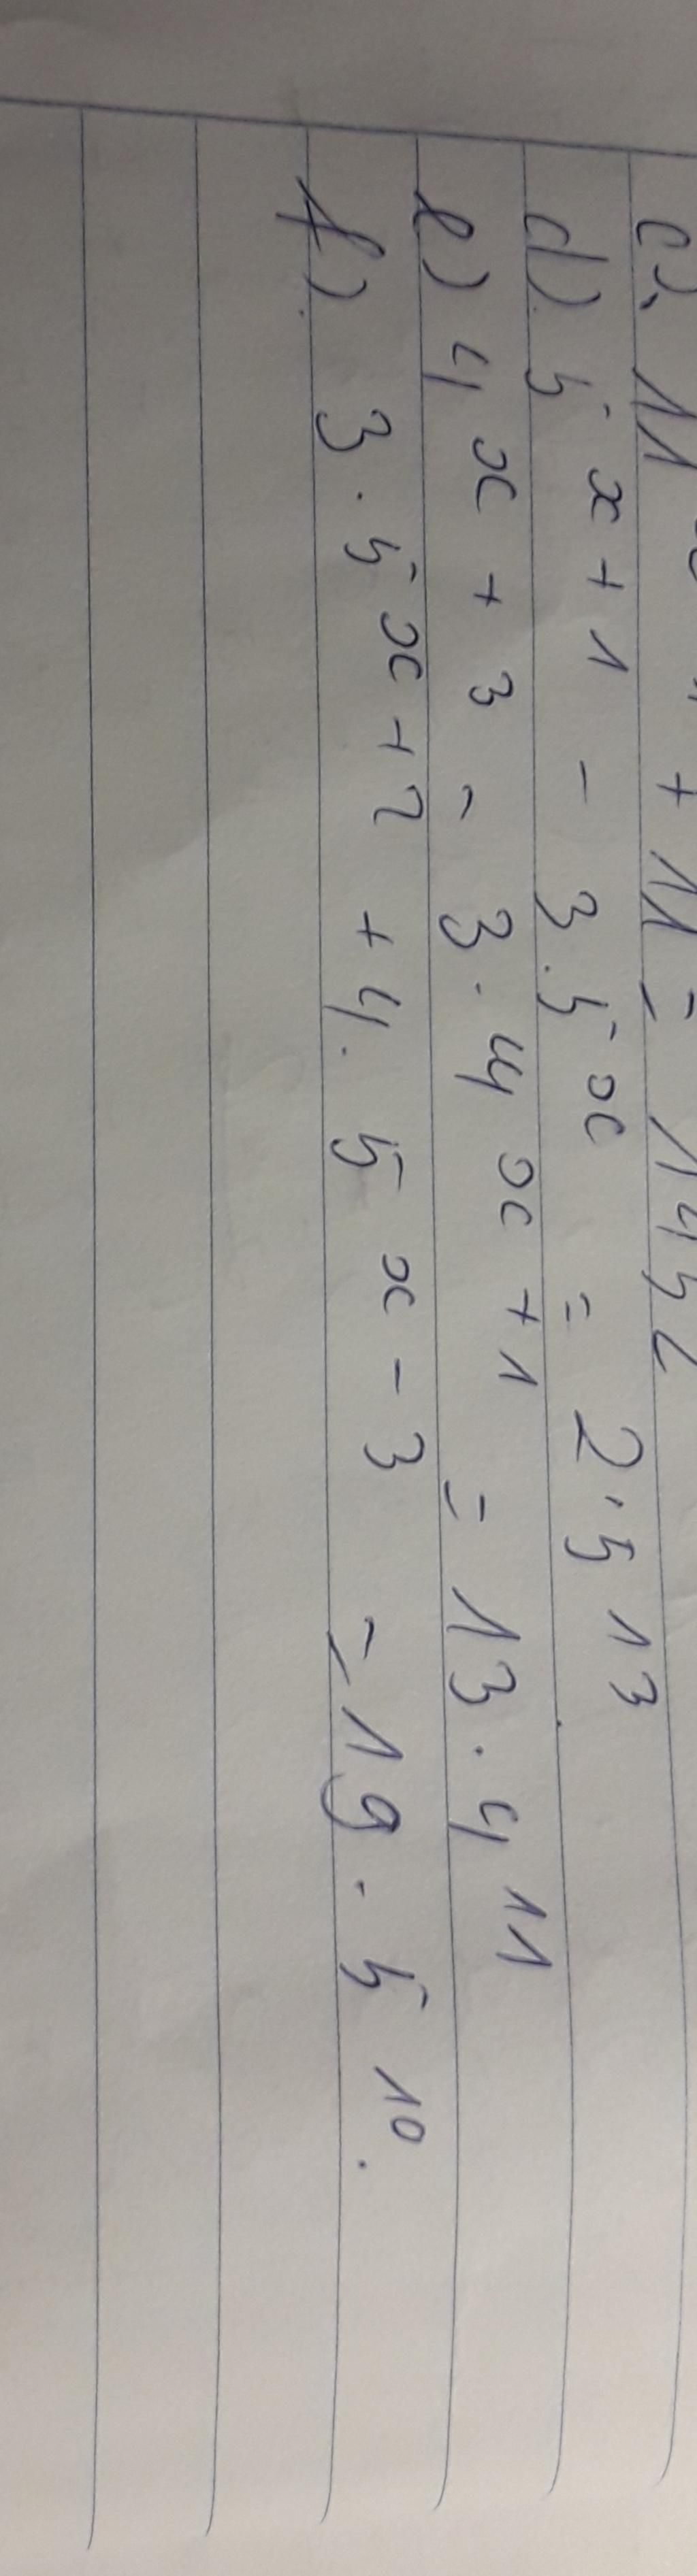 c). 11 + 11 = 1452
d). 5^{x+1} - 3.5^{x} = 2.5^{13}
e) 4^{x+3} - 3.4^{x+1} = 13.4^{11}
f). 3.5^{x+2} + 4.5^{x-3} = 19.5^{10}.